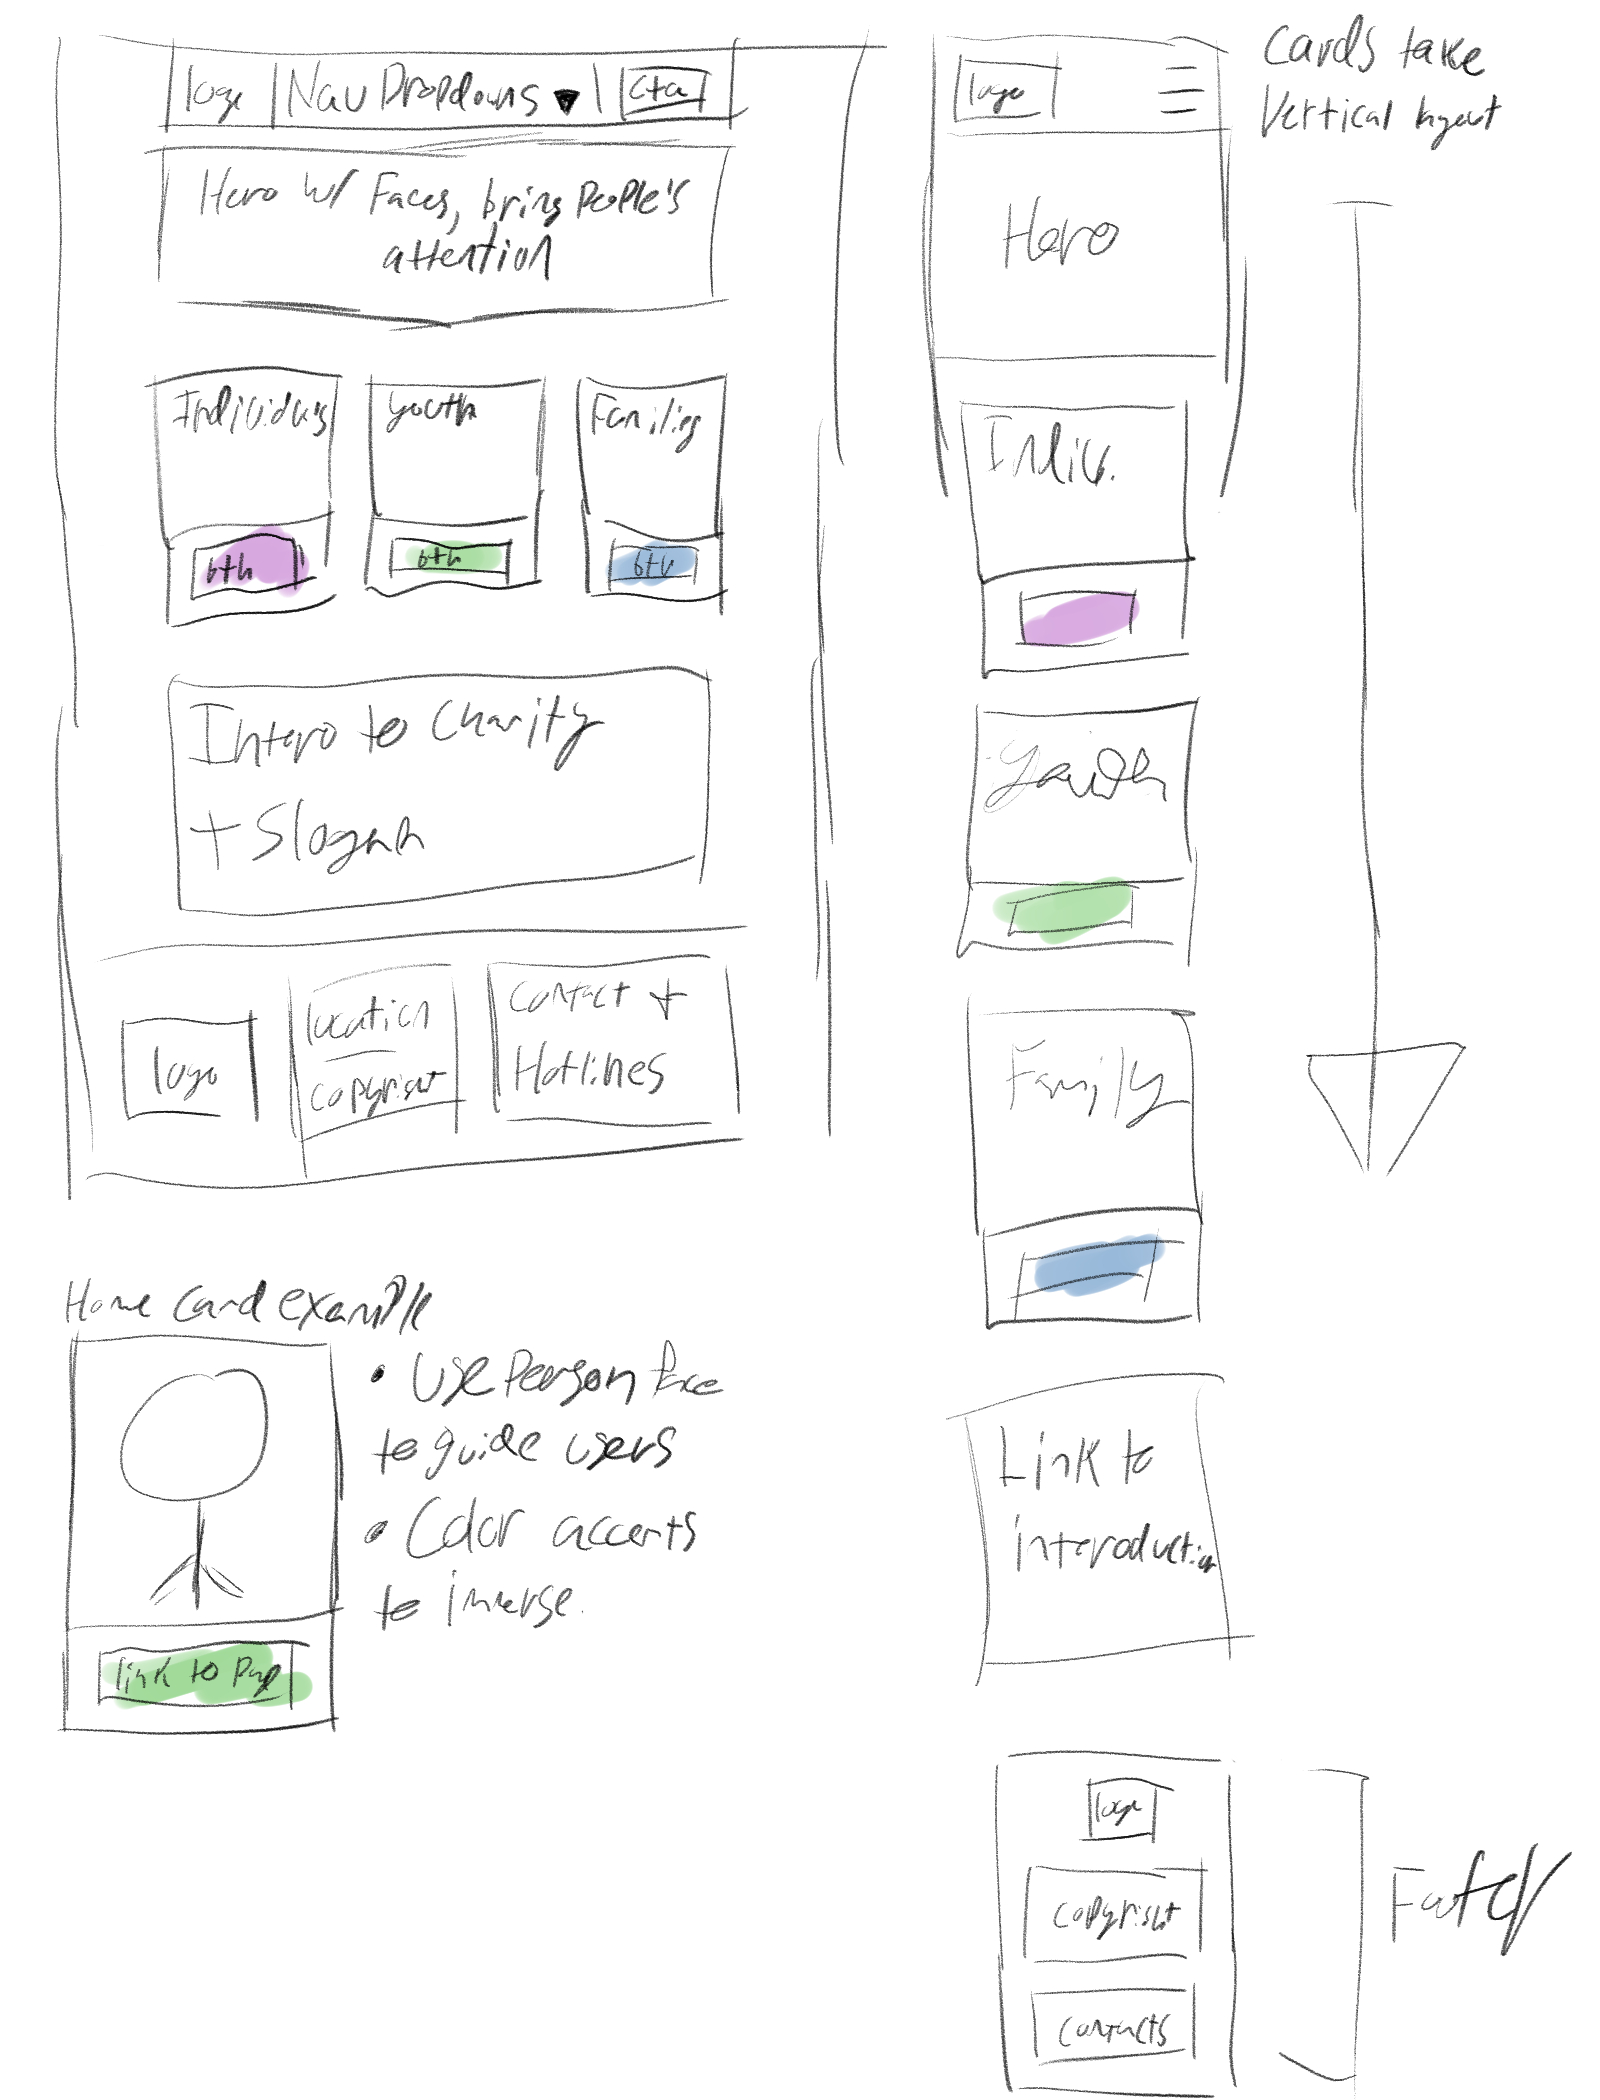 logo
Nav Dropdowns
cta
Hero w/ Faces, bring People's
attention
Individu's
youth
Families
btn
btn
btn
Intero to Charity
+ Slogan
logo
location
copyright
contact +
Hotlines
Home card example
• Use Person face
to guide users
• Color accents
to imerse.
link to page
logo
Hero
Indiv.
Youth
Family
Link to
interoduction
logo
copyright
contacts
Cards take
Vertical layout
Footer